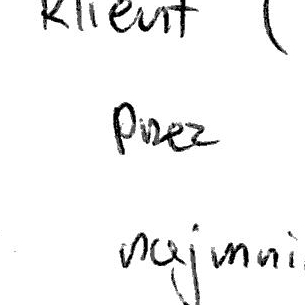 klient (
przez
najmni